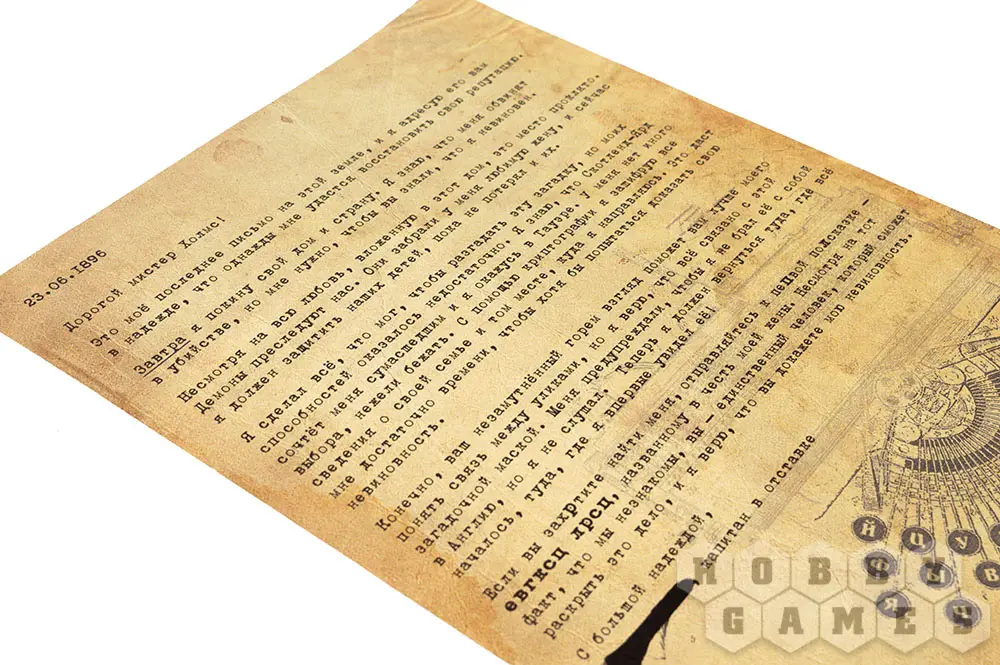 23.06.1896
Дорогой мистер Холмс!
Это моё последнее письмо на этой земле, и я адресую его вам
в надежде, что однажды мне удастся восстановить свою репутацию.
Завтра я покину свой дом и страну. Я знаю, что меня обвинят
в убийстве, но мне нужно, чтобы вы знали, что я невиновен.
Несмотря на всю любовь, вложенную в этот дом, это место проклято.
Демоны преследуют нас. Они забрали у меня любимую жену, и сейчас
я должен защитить наших детей, пока не потерял и их.
Я сделал всё, что мог, чтобы разгадать эту загадку, но моих
способностей оказалось недостаточно. Я знаю, что Скотленд-Ярд
сочтёт меня сумасшедшим и я окажусь в Тауэре. У меня нет иного
выбора, нежели бежать. С помощью криптографии я зашифрую все
сведения о своей семье и том месте, куда я направляюсь. Это даст
мне достаточно времени, чтобы хотя бы попытаться доказать свою
невиновность.
Конечно, ваш незамутнённый горем взгляд поможет вам лучше моего
понять связь между уликами, но я верю, что всё связано с этой
загадочной маской. Меня предупреждали, чтобы я не брал её с собой
в Англию, но я не слушал. Теперь я должен вернуться туда, где всё
началось, туда, где я впервые увидел её.
Если вы захотите найти меня, отправляйтесь к первой подсказке –
евгксц лрсц, названному в честь моей жены. Несмотря на тот
факт, что мы незнакомы, вы – единственный человек, который сможет
раскрыть это дело, и я верю, что вы докажете мою невиновность.
С большой надеждой,
капитан в отставке
Й Ц У
Ф Ы В
Я Ч
HOBBY
GAMES